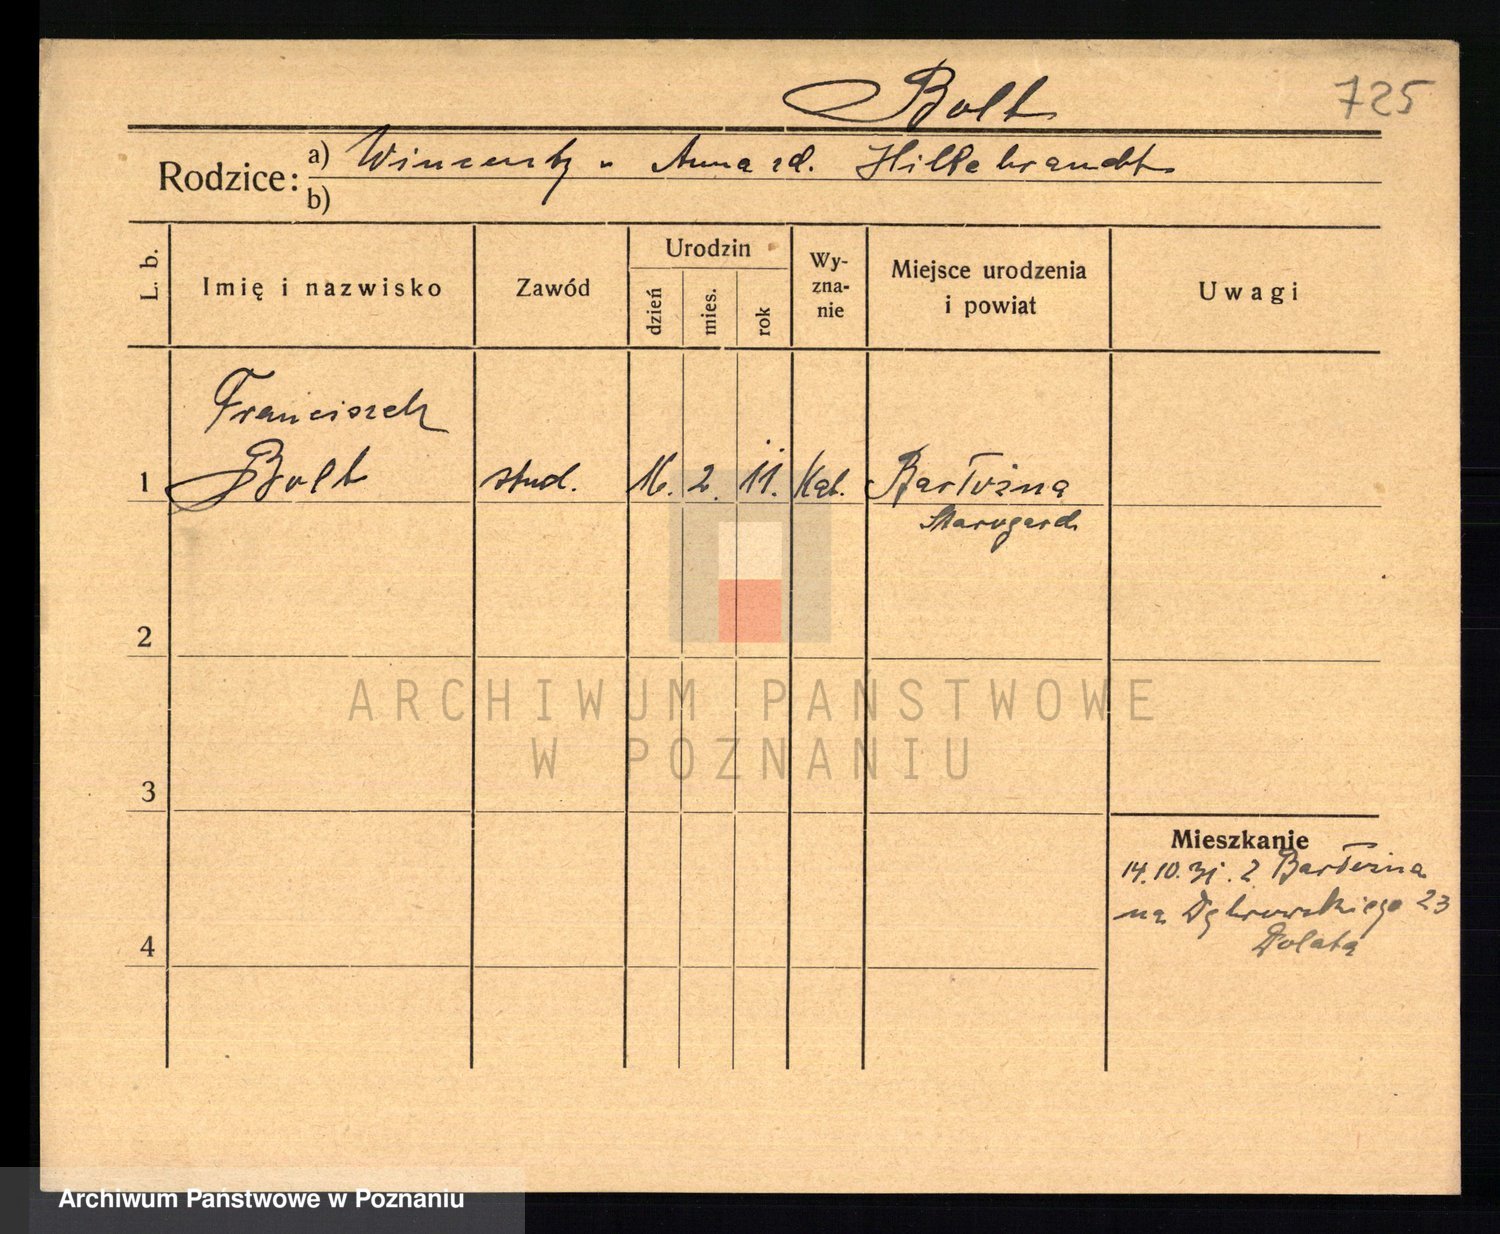 Bolt
725
Rodzice:
a) Wincenty - Anna zd. Hillebrandt
b)
L. b.
Imię i nazwisko
Zawód
Urodzin
dzień
mies.
rok
Wy-
zna-
nie
Miejsce urodzenia
i powiat
Uwagi
Franciszek
1 Bolt stud. 16. 2. 11. Kat. Bartożna
Starogard
2
3
4
ARCHIWUM PAŃSTWOWE
W POZNANIU
Mieszkanie
14.10.31. z Bartożna
na Dąbrowskiego 23
Dolata
Archiwum Państwowe w Poznaniu